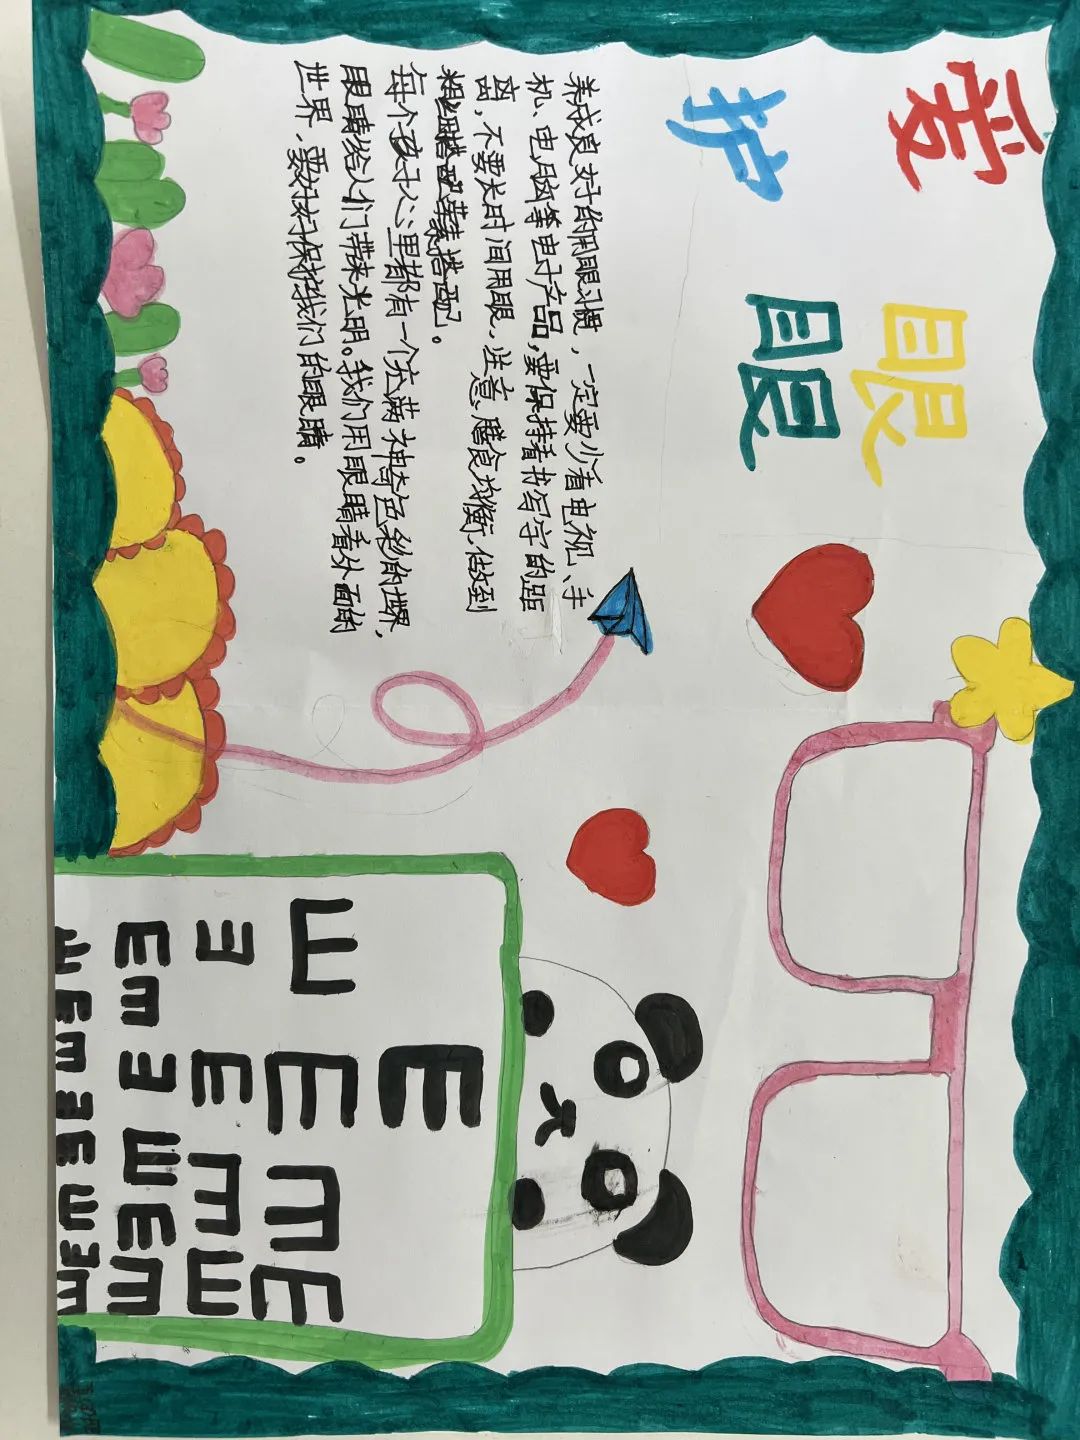 爱眼
护眼
养成良好的用眼习惯，一定要少看电视、手
机、电脑等电子产品，要保持看书写字的距
离，不要长时间用眼、注意、膳食均衡、做到
粗细搭配、荤素搭配。
每个孩子心里都有一个充满神奇色彩的世界，
眼睛给人们带来光明。我们用眼睛看外面的
世界、要好好保护我们的眼睛。